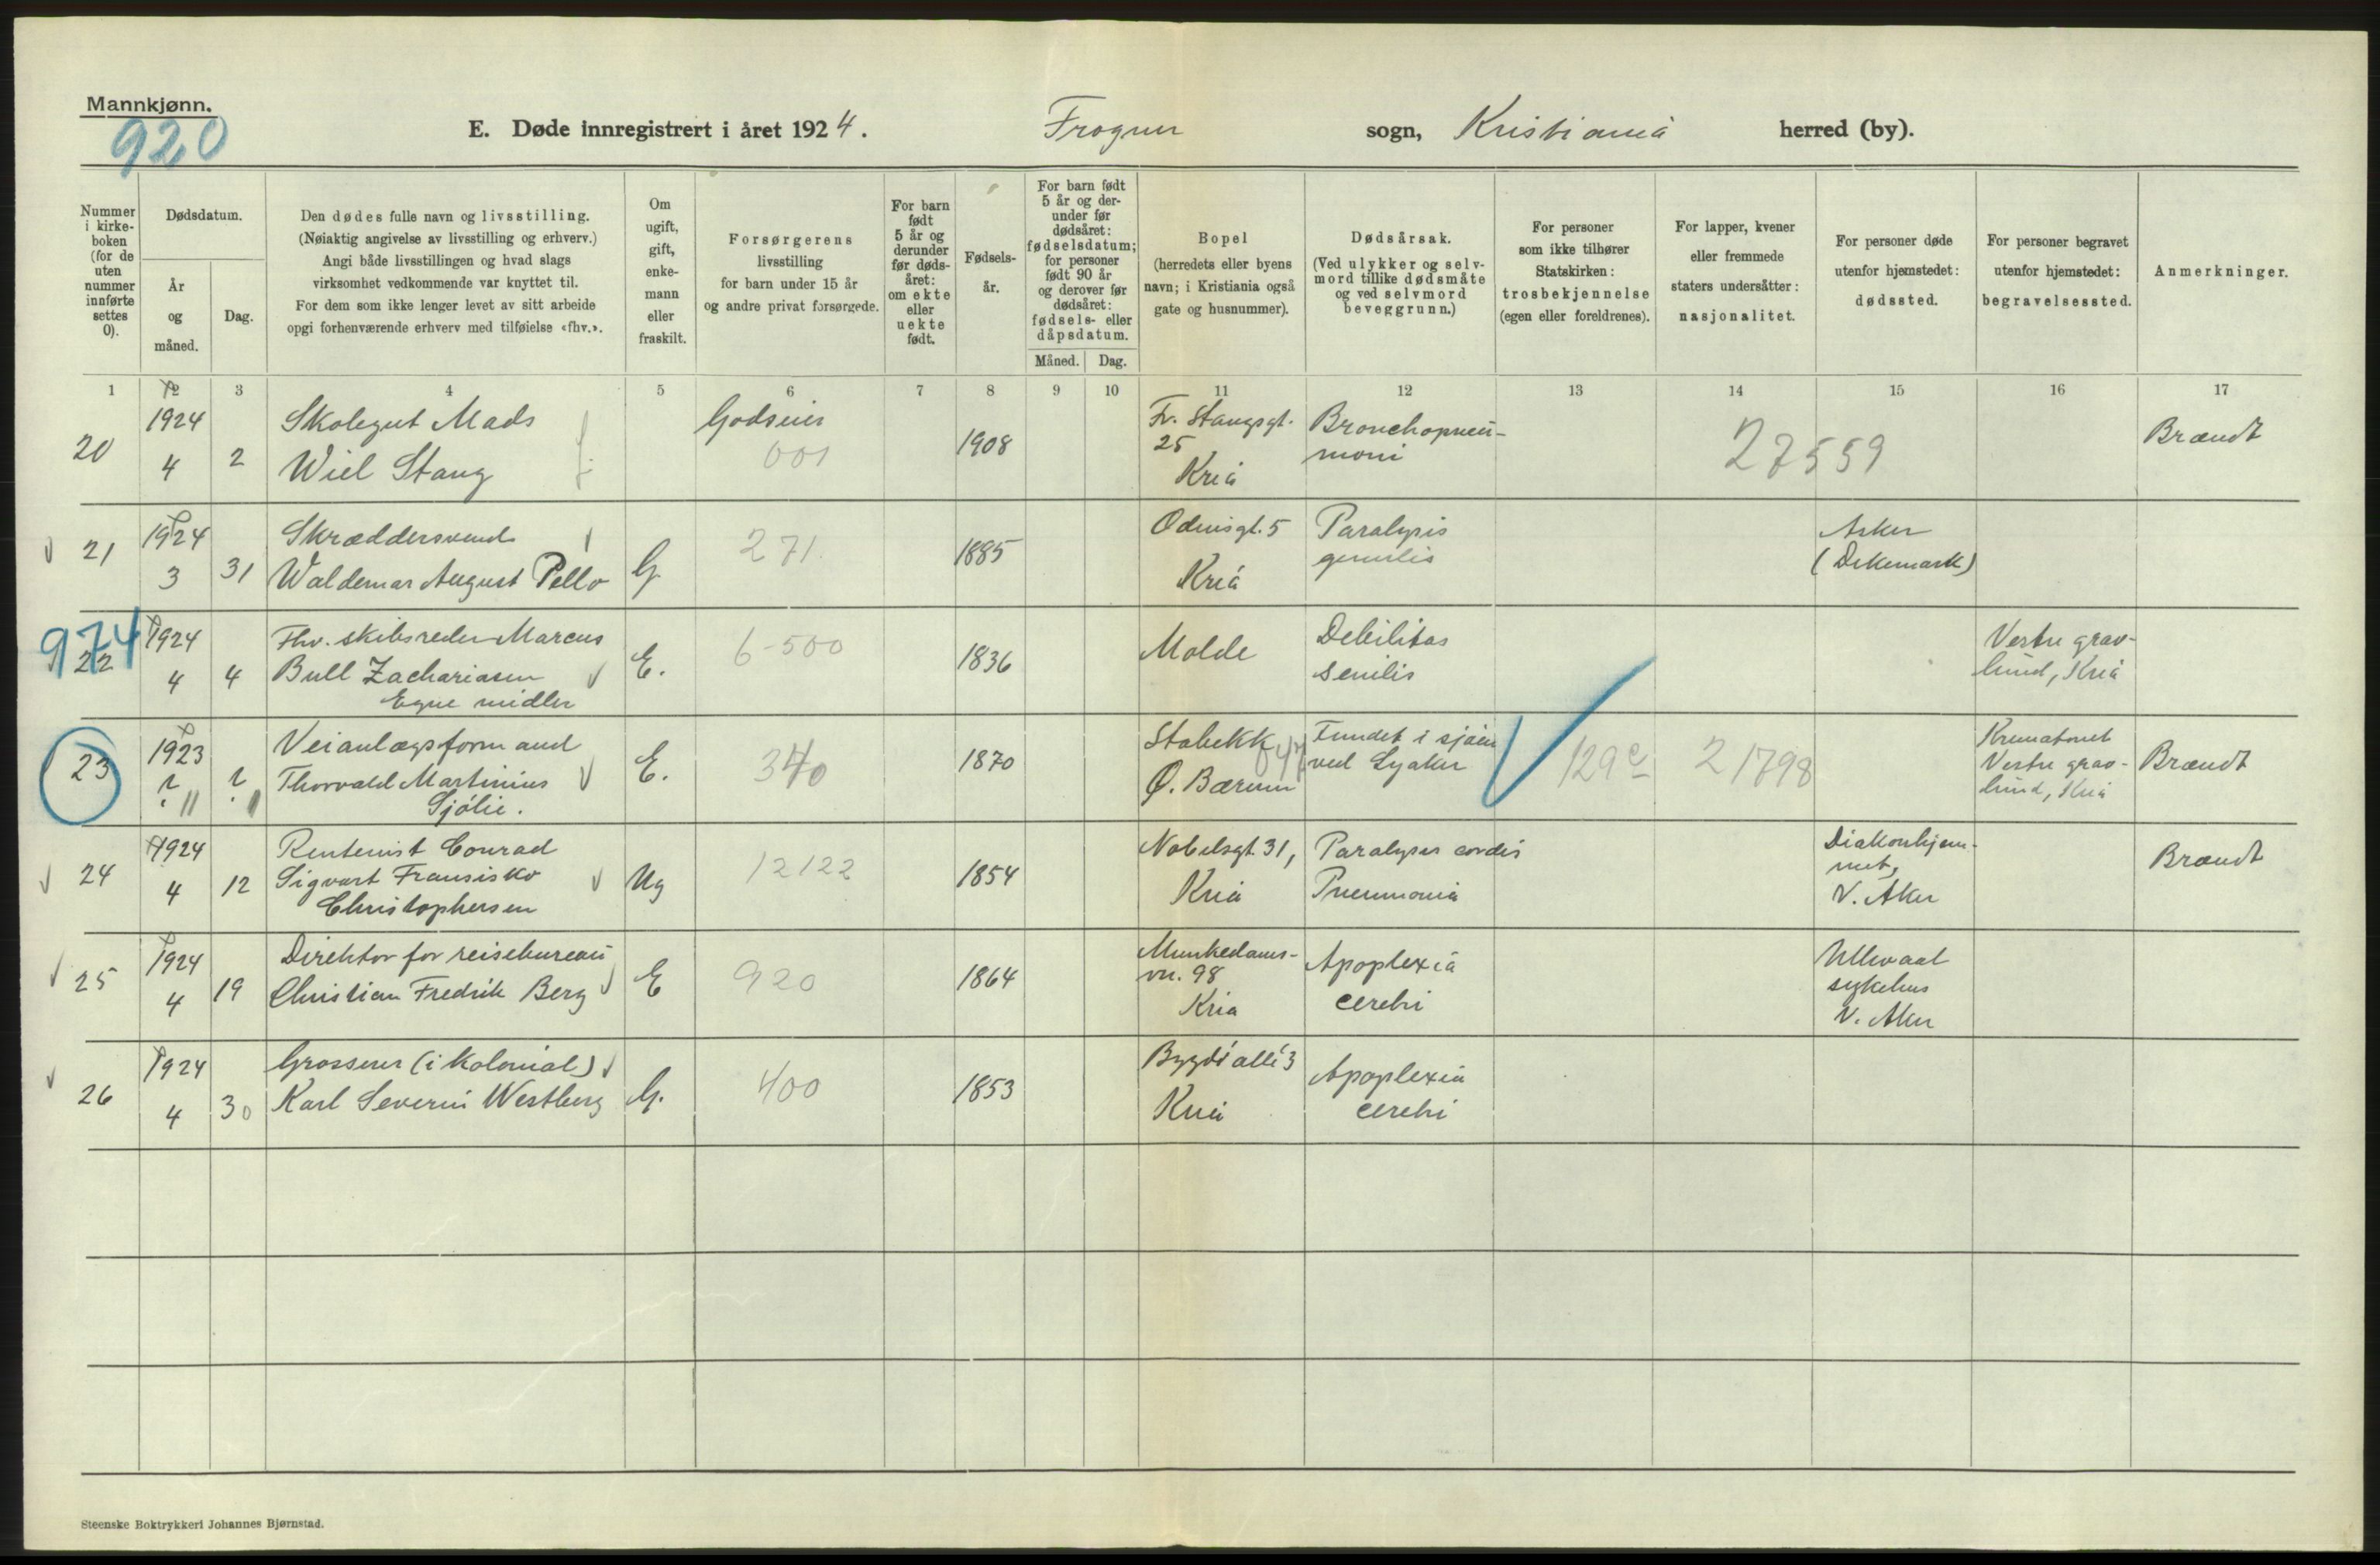 Mannkjønn.
920
E. Døde innregistrert i året 1924. Frogner sogn, Kristiania herred (by).
Nummer i kirke-boken (for de uten nummer innførte settes 0).
Dødsdatum.
År og måned.
Dag.
Den dødes fulle navn og livsstilling.
(Nøiaktig angivelse av livsstilling og erhverv.)
Angi både livsstillingen og hvad slags
virksomhet vedkommende var knyttet til.
For dem som ikke lenger levet av sitt arbeide
opgi forhenværende erhverv med tilføielse «fhv.».
Om ugift, gift, enke-mann eller fraskilt.
Forsørgerens
livsstilling
for barn under 15 år
og andre privat forsørgede.
For barn født 5 år og derunder før døds-året: om ekte eller uekte født.
Fødsels-år.
For barn født 5 år og der-under før dødsåret: fødselsdatum; for personer født 90 år og derover før dødsåret: fødsels- eller dåpsdatum.
Måned. Dag.
Bopel
(herredets eller byens
navn; i Kristiania også
gate og husnummer).
Dødsårsak.
(Ved ulykker og selv-
mord tillike dødsmåte
og ved selvmord
beveggrunn.)
For personer
som ikke tilhører
Statskirken:
trosbekjennelse
(egen eller foreldrenes).
For lapper, kvener
eller fremmede
staters undersåtter:
nasjonalitet.
For personer døde
utenfor hjemstedet:
dødssted.
For personer begravet
utenfor hjemstedet:
begravelsessted.
Anmerkninger.
1 2 3 4 5 6 7 8 9 10 11 12 13 14 15 16 17
20 1924 4 2 Skolegut Mads
Wiel Stang
Godseier
001
1908
Fr. Stangsgt.
25
Kria
Bronchopneu-
moni
27559
Brandt
21 1924 3 31 Skræddersvend
Waldemar August Pello
G. 271 1885
Odinsgt. 5
Kria
Paralysis
generalis
Asker
(Dikemark)
974
22 1924 4 4 Fhv. skibsreder Marcus
Bull Zachariasen
Egne midler
E. 6-500 1836
Molde
Debilitas
senilis
Vestre grav-
lund, Kria
23 1923 ? 11 ? Veianlægsformand
Thorvald Martinius
Sjölie.
E. 340 1870
Stabekk
Ø. Bærum
Fundet i sjøen
ved Lysaker
129c
21798
Krematoriet
Vestre grav-
lund, Kria
Brandt
24 1924 4 12 Rentenist Conrad
Sigvart Fransisko
Christophersen
Ug 12122 1854
Nobelsgt. 31,
Kria
Paralysis cordis
Pneumonia
Diakonhjem-
met,
V. Aker
Brandt
25 1924 4 19 Direktor for reisebureau
Christian Fredrik Berg
E 920 1864
Munkedams-
vn. 98
Kria
Apoplexia
cerebri
Ullevaal
sykehus
V. Aker
26 1924 4 30 Grosserer (i kolonial)
Karl Severin Westberg
G. 400 1853
Bygdø allé 3
Kria
Apoplexia
cerebri
Steenske Boktrykkeri Johannes Bjørnstad.